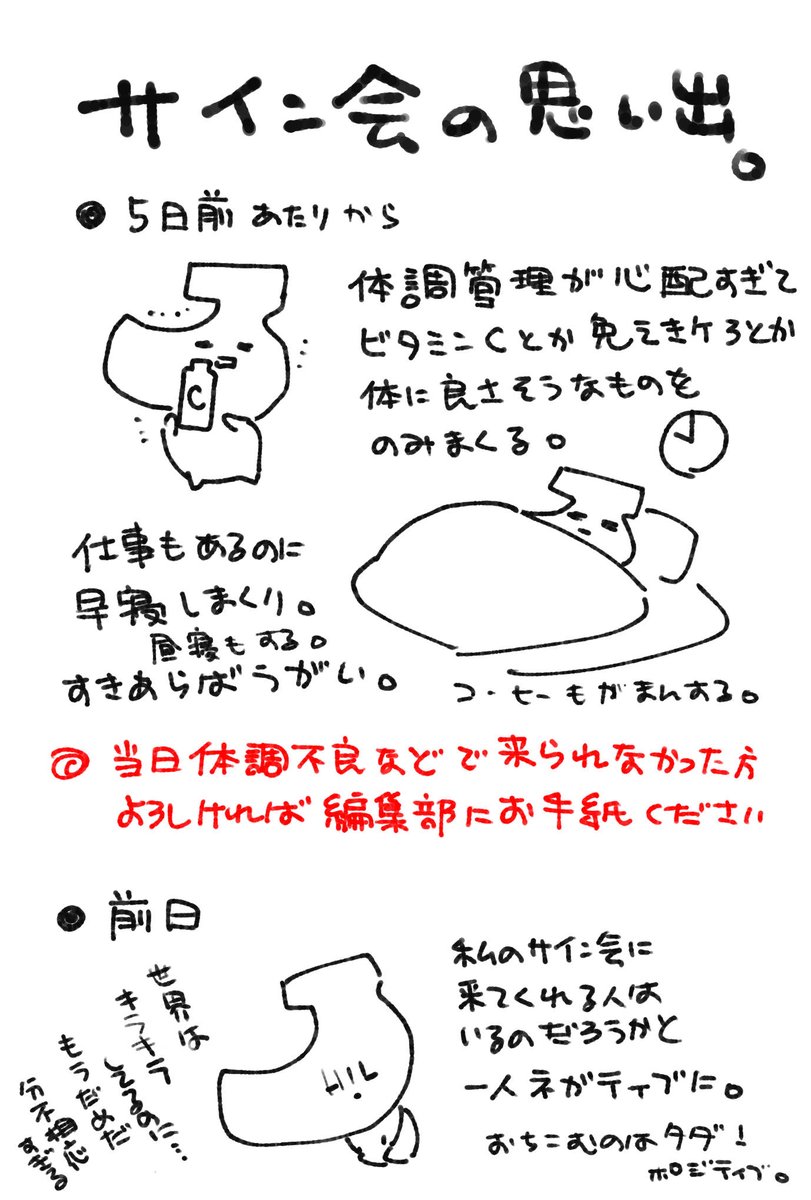 サイン会の思い出。
5日前あたりから
体調管理が心配すぎて
ビタミンCとか免えきケアとか
体に良さそうなものを
のみまくる。
C
仕事もあるのに
早寝しまくり。
昼寝もする。
すきあらばうがい。
コーヒーもがまんする。
当日体調不良などで来られなかった方
よろしければ編集部にお手紙ください
前日
私のサイン会に
来てくれる人は
いるのだろうかと
一人ネガティブに。
おちこむのはタダ!
ポジティブ。
世界は
キラキラ
してるのに…
もうだめだ
分不相応
すぎる